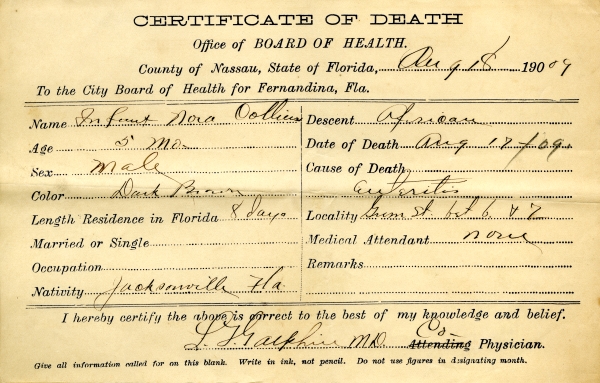 CERTIFICATE OF DEATH
Office of BOARD OF HEALTH.
County of Nassau, State of Florida, Aug 18 190 09
To the City Board of Health for Fernandina, Fla.
Name Infant Nora Collins
Age 5 Mo.
Sex Male
Color Dark Brown
Length Residence in Florida 8 days
Married or Single
Occupation
Nativity Jacksonville Fla.
Descent African
Date of Death Aug 17/09
Cause of Death
Locality Gum St. bet 6 & 7
Medical Attendant none
Remarks
I hereby certify the above is correct to the best of my knowledge and belief.
M.D. Co Attending Physician.
Give all information called for on this blank. Write in ink, not pencil. Do not use figures in designating month.